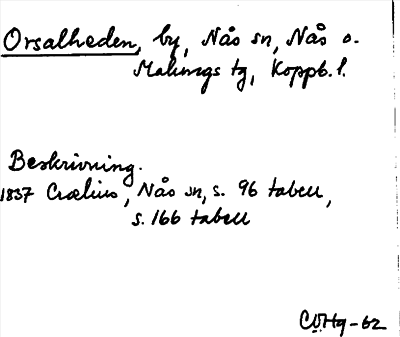 Orsalheden, by, Nås sn, Nås o.
Malungs tg, Koppb. l.
Beskrivning.
1837 Crælius, Nås sn, s. 96 tabell,
s. 166 tabell
COHg-62